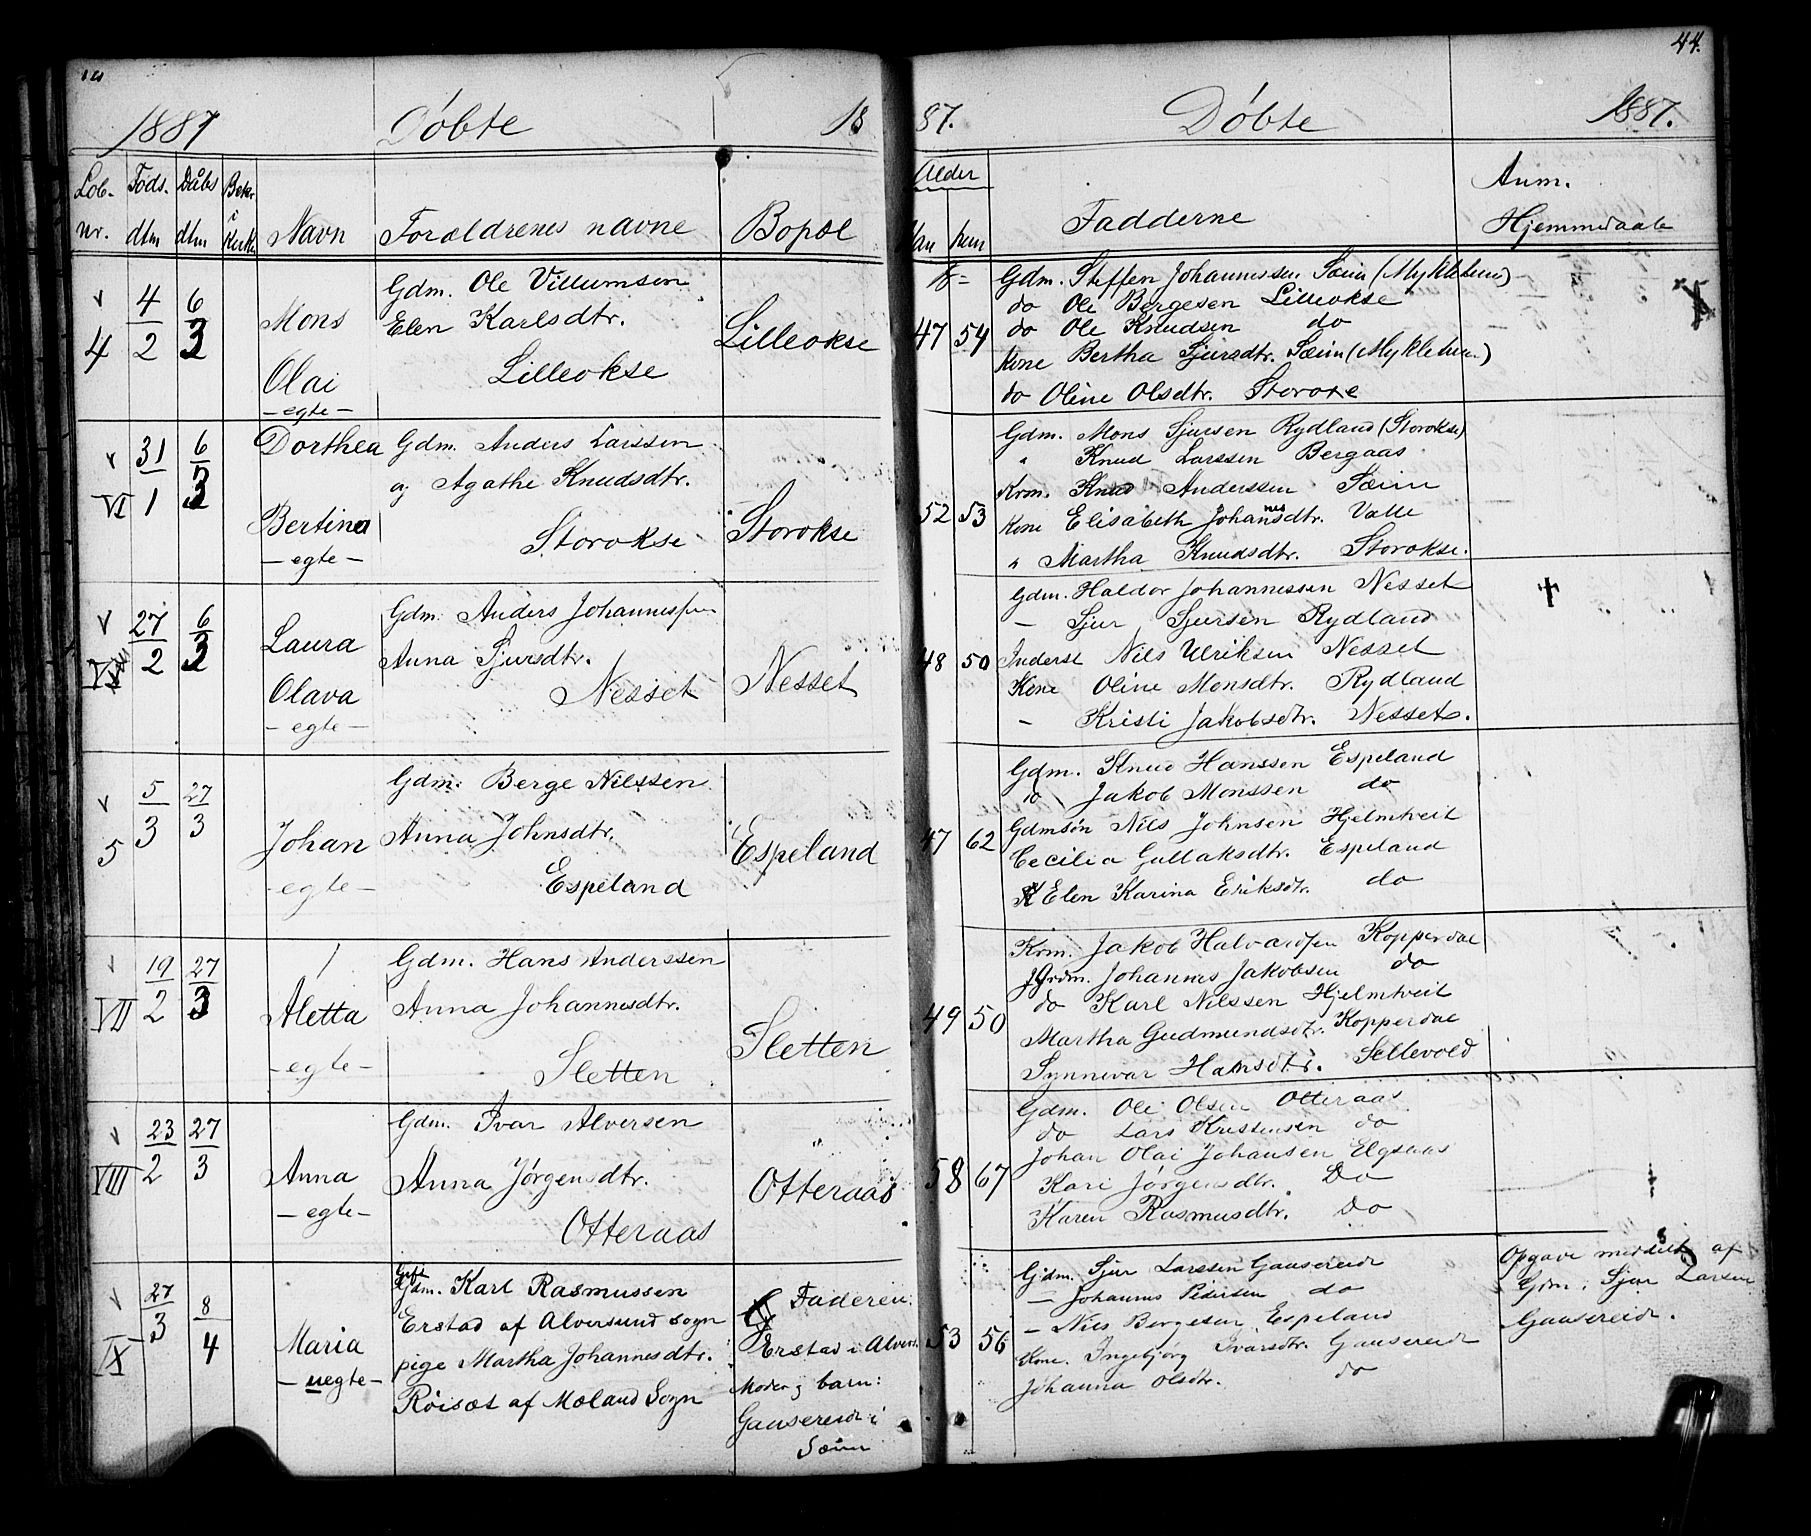 44.
1887 Døbte 18 87. Døbte 1887.
Løb. nr. Føds. dtm Dåbs dtm Navn Forældrenes navne Bopæl Alder kvn Fadderne Anm. Hjemmedaab
4 4/2 6/3 Mons Olai - egte -
Gdm. Ole Villumsen
Elen Karlsdtr.
Lilleokse
Lilleokse
18-
47 54
Gdm. Steffen Johannessen Sæim (Mykletun)
do Ole Børgesen Lilleokse
do Ole Knudsen do
Kone Bertha Sjursdtr. Sæim (Mykletun)
do Oline Olsdtr. Storokse
VI 31/1 6/3 Dorthea Bertina - egte -
Gdm. Anders Larssen
og Agathe Knudsdtr.
Storokse
Storokse
52 53
Gdm. Mons Sjursen Rydland (Storokse)
" Knud Larssen Bergaas
Krm. Knud Anderssen Sæim
Kone Elisabeth Johannesdtr. Valle
" Martha Knudsdtr. Storokse.
27/2 6/3 Laura Olava - egte -
Gdm. Anders Johannessen
Anna Sjursdtr.
Nesset
Nesset
48 50
Gdm. Haldor Johannessen Nesset
- Sjur Sjursen Rydland
Inderst Nils Ulriksen Nesset
Kone Oline Monsdtr. Rydland
- Kristi Jakobsdtr. Nesset.
5 5/3 27/3 Johan - egte -
Gdm. Berge Nilssen
Anna Johnsdtr.
Espeland
Espeland
47 62
Gdm. Knud Hanssen Espeland
do Jakob Monssen do
Gdmsøn Nils Johnsen Hjelmtveit
Cecilia Gullaksdtr. Espeland
Elen Karina Eriksdtr. do
VII 19/2 27/3 Aletta - egte -
Gdm. Hans Anderssen
Anna Johannesdtr.
Sletten
Sletten
49 50
Krm. Jakob Halvardsen Kopperdal
Gdm. Johannes Jakobsen do
do Karl Nilssen Hjelmtveit
Martha Gudmundsdtr. Kopperdal
Synnevar Hansdtr. Sellevold
VIII 23/2 27/3 Anna - egte -
Gdm. Ivar Alversen
Anna Jørgensdtr.
Otteraas
"
Otteraas
58 67
Gdm. Ole Olsen Otteraas
do Lars Kristensen do
Johan Olai Johansen Elgsaas
Kari Jørgensdtr. Do
Karen Rasmusdtr. Do
IX 27/3 8/4 Maria - uegte -
Gift
Gdm. Karl Rasmussen
Erstad af Alversund sogn
pige Martha Johannesdtr.
Röisæt af Mæland Sogn
Faderen:
Erstad i Alvers.
Moder og barn:
Gausereide i
Sæim
53 56
Gdm. Sjur Larssen Gausereide
- Johannes Pedersen do
- Nils Bergesen Espeland
Kone. Ingebjørg Ivarsdtr. Gausereid
Johanna Olsdtr. do
Opgave meddelt af
Gdm. Sjur Larsen
Gausereide.